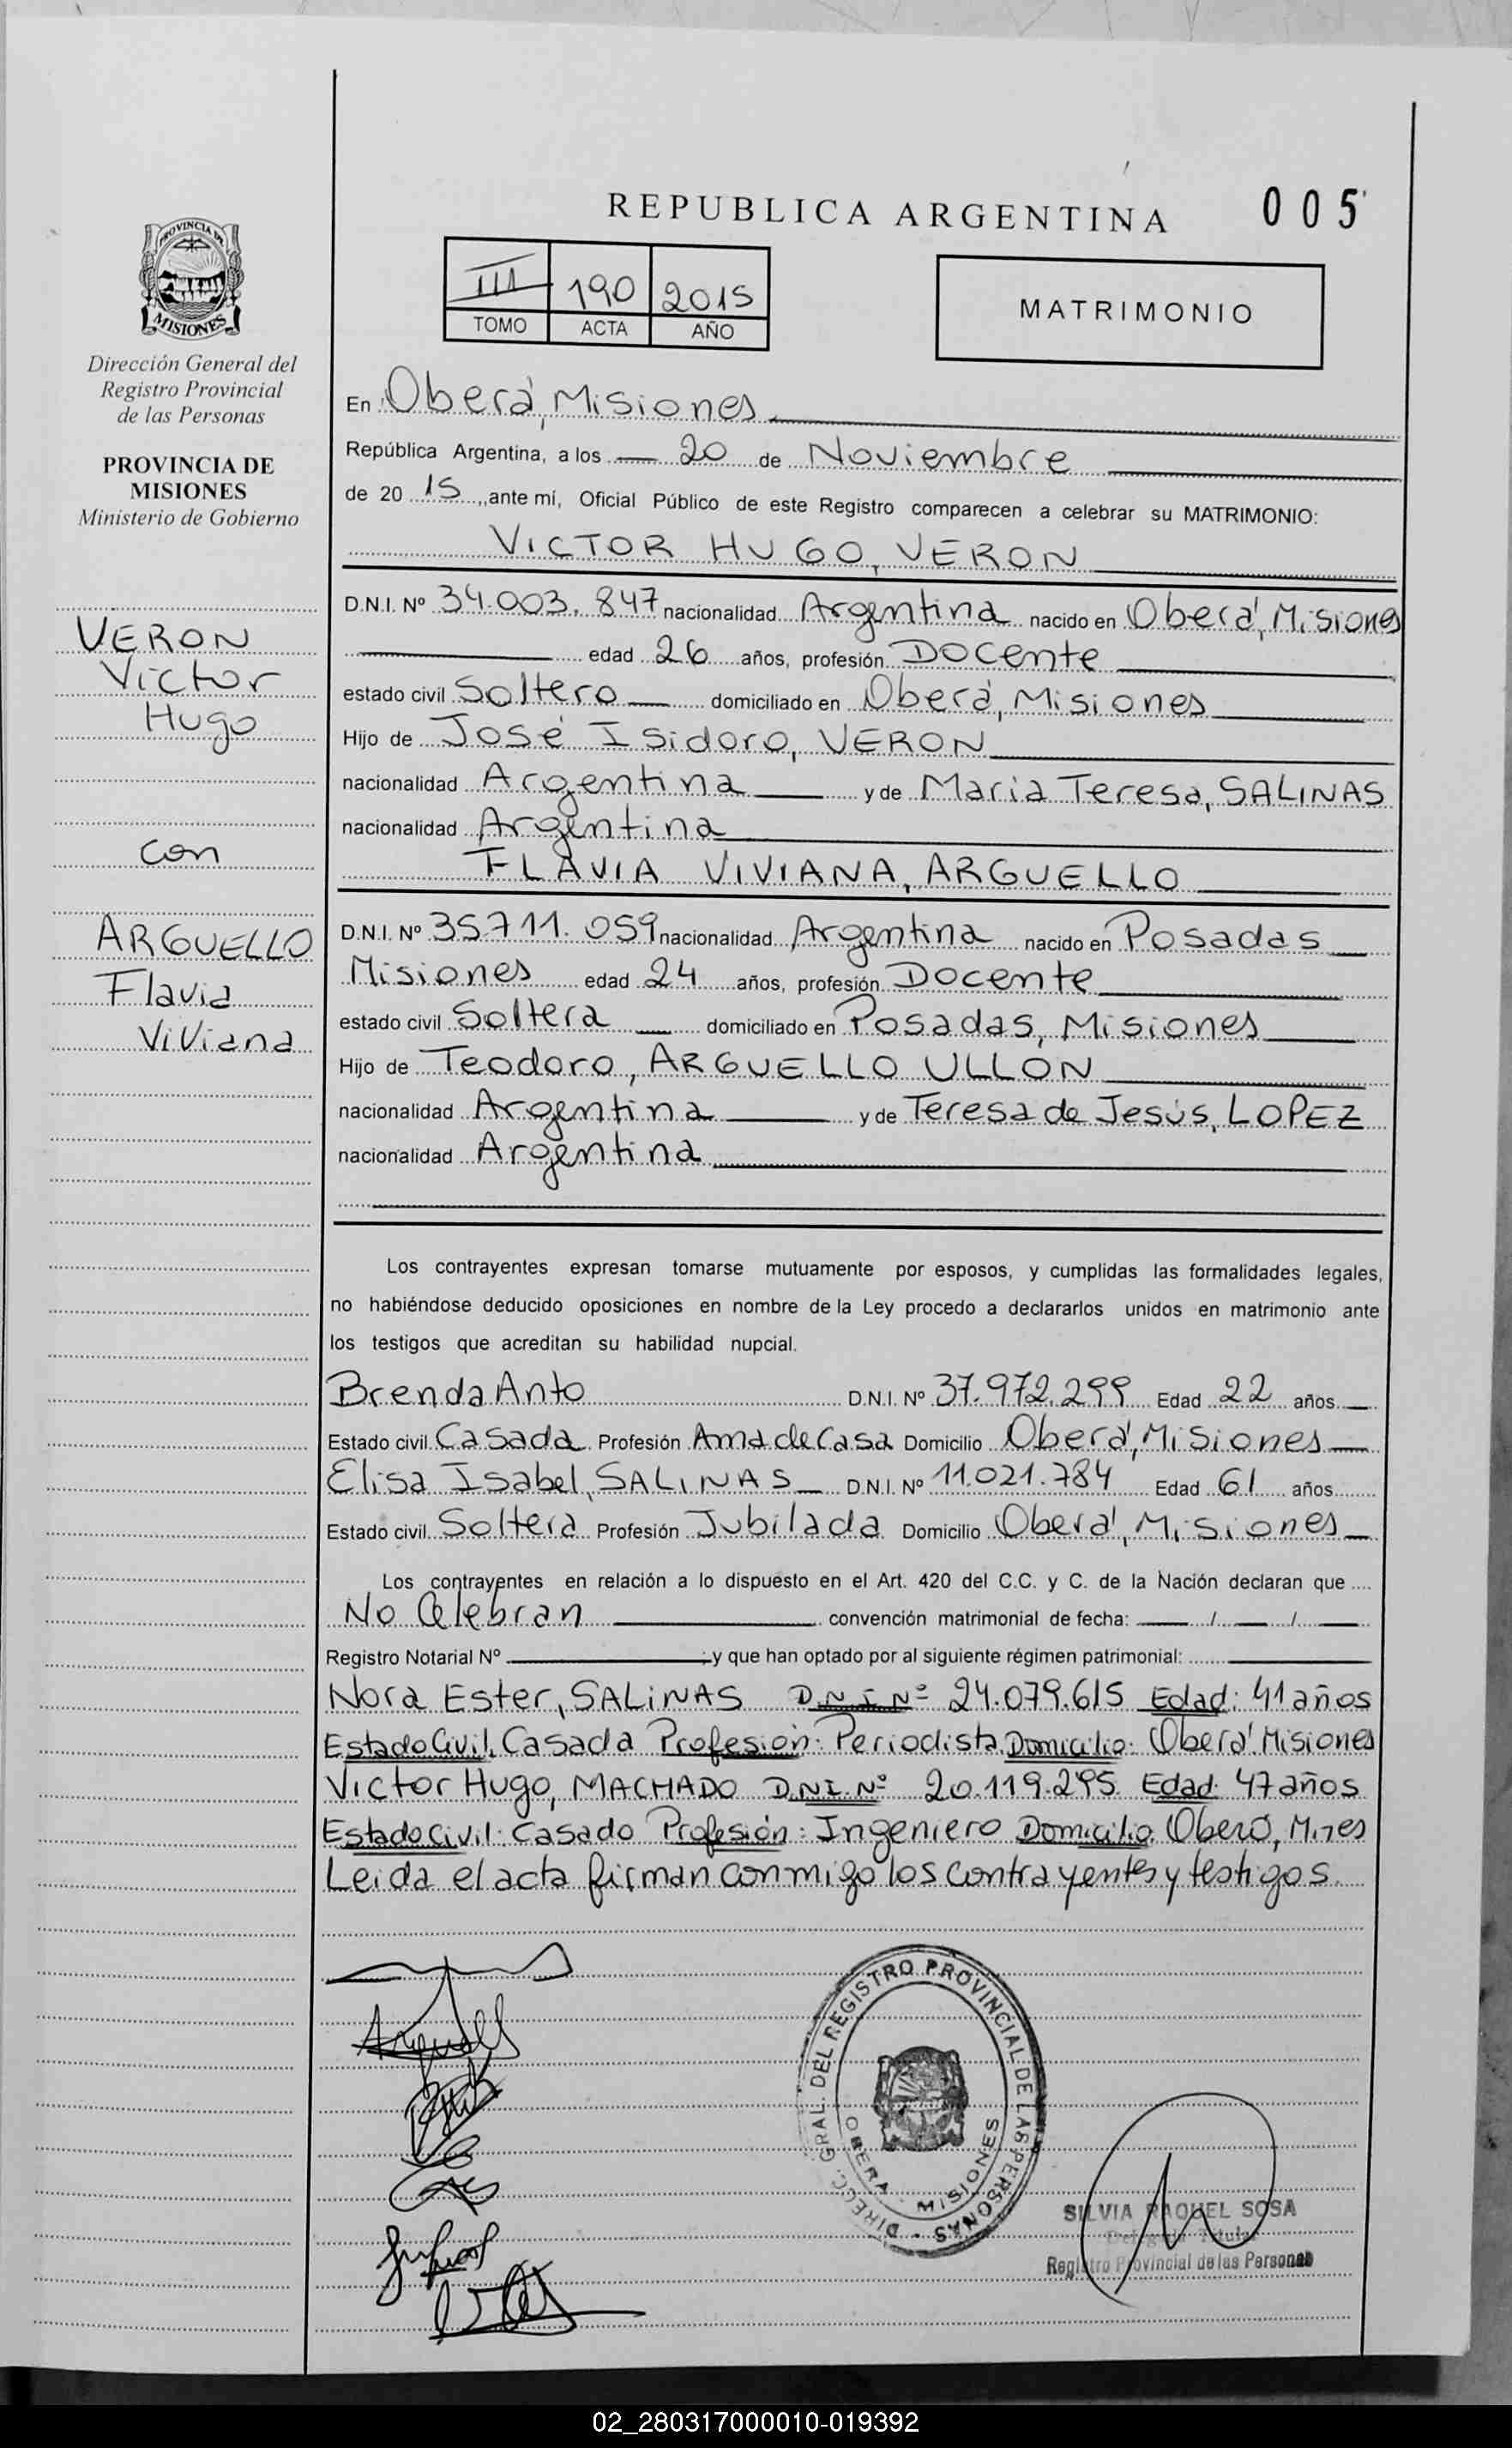 REPUBLICA ARGENTINA
005
III 190 2015
TOMO ACTA AÑO
MATRIMONIO
PROVINCIA DE
MISIONES
Dirección General del
Registro Provincial
de las Personas
PROVINCIA DE
MISIONES
Ministerio de Gobierno
VERON
Victor
Hugo
con
ARGUELLO
Flavia
Viviana
En Oberá, Misiones
República Argentina, a los 20 de Noviembre
de 2015, ante mí, Oficial Público de este Registro comparecen a celebrar su MATRIMONIO:
VICTOR HUGO, VERON
D.N.I. Nº 34.003.847 nacionalidad Argentina nacido en Oberá, Misiones
edad 26 años, profesión Docente
estado civil Soltero domiciliado en Oberá, Misiones
Hijo de José Isidoro, VERON
nacionalidad Argentina y de Maria Teresa, SALINAS
nacionalidad Argentina
FLAVIA VIVIANA, ARGUELLO
D.N.I. Nº 35711.059 nacionalidad Argentina nacido en Posadas
Misiones edad 24 años, profesión Docente
estado civil Soltera domiciliado en Posadas, Misiones
Hijo de Teodoro, ARGUELLO ULLON
nacionalidad Argentina y de Teresa de Jesús, LOPEZ
nacionalidad Argentina
Los contrayentes expresan tomarse mutuamente por esposos, y cumplidas las formalidades legales,
no habiéndose deducido oposiciones en nombre de la Ley procedo a declararlos unidos en matrimonio ante
los testigos que acreditan su habilidad nupcial.
Brenda Anto D.N.I. Nº 37.972.299 Edad 22 años
Estado civil Casada Profesión Ama de Casa Domicilio Oberá, Misiones
Elisa Isabel, SALINAS D.N.I. Nº 11.021.784 Edad 61 años
Estado civil Soltera Profesión Jubilada Domicilio Oberá, Misiones
Los contrayentes en relación a lo dispuesto en el Art. 420 del C.C. y C. de la Nación declaran que
No Celebran convención matrimonial de fecha: / /
Registro Notarial Nº ; y que han optado por al siguiente régimen patrimonial:
Nora Ester, SALINAS D.N.I Nº 24.079.615 Edad: 41 años
Estado Civil: Casada Profesión: Periodista Domicilio: Oberá Misiones
Victor Hugo, MACHADO D.N.I. Nº 20.119.295 Edad: 47 años
Estado Civil: Casado Profesión: Ingeniero Domicilio: Oberá, M.nes
Leida el acta firman conmigo los contrayentes y testigos.
DIRECC. GRAL. DEL REGISTRO PROVINCIAL DE LAS PERSONAS
OBERA - MISIONES
SILVIA RAQUEL SOSA
Delegada Titular
Registro Provincial de las Personas
02_280317000010-019392